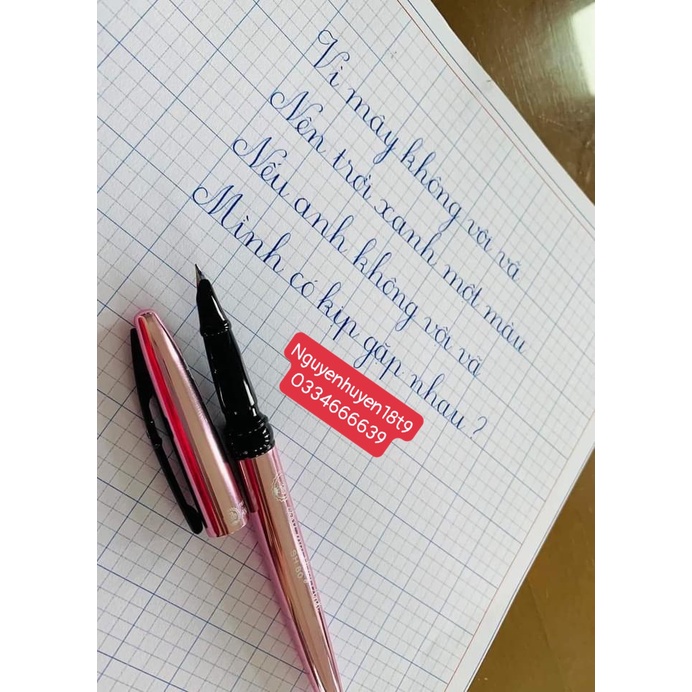 Vì mây không vội vã
Nên trời xanh một màu
Nếu anh không vội vã
Mình có kịp gặp nhau ?
Nguyenhuyen18t9
0334666639